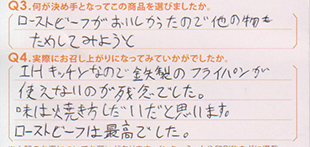 Q3.何が決め手となってこの商品を選びましたか。
ローストビーフがおいしかったので他の物を
ためしてみようと
Q4.実際にお召し上がりになってみていかがでしたか。
IHキッチンなので鉄製のフライパンが
使えないのが残念でした。
味は焼き方しだいだと思います。
ローストビーフは最高でした。